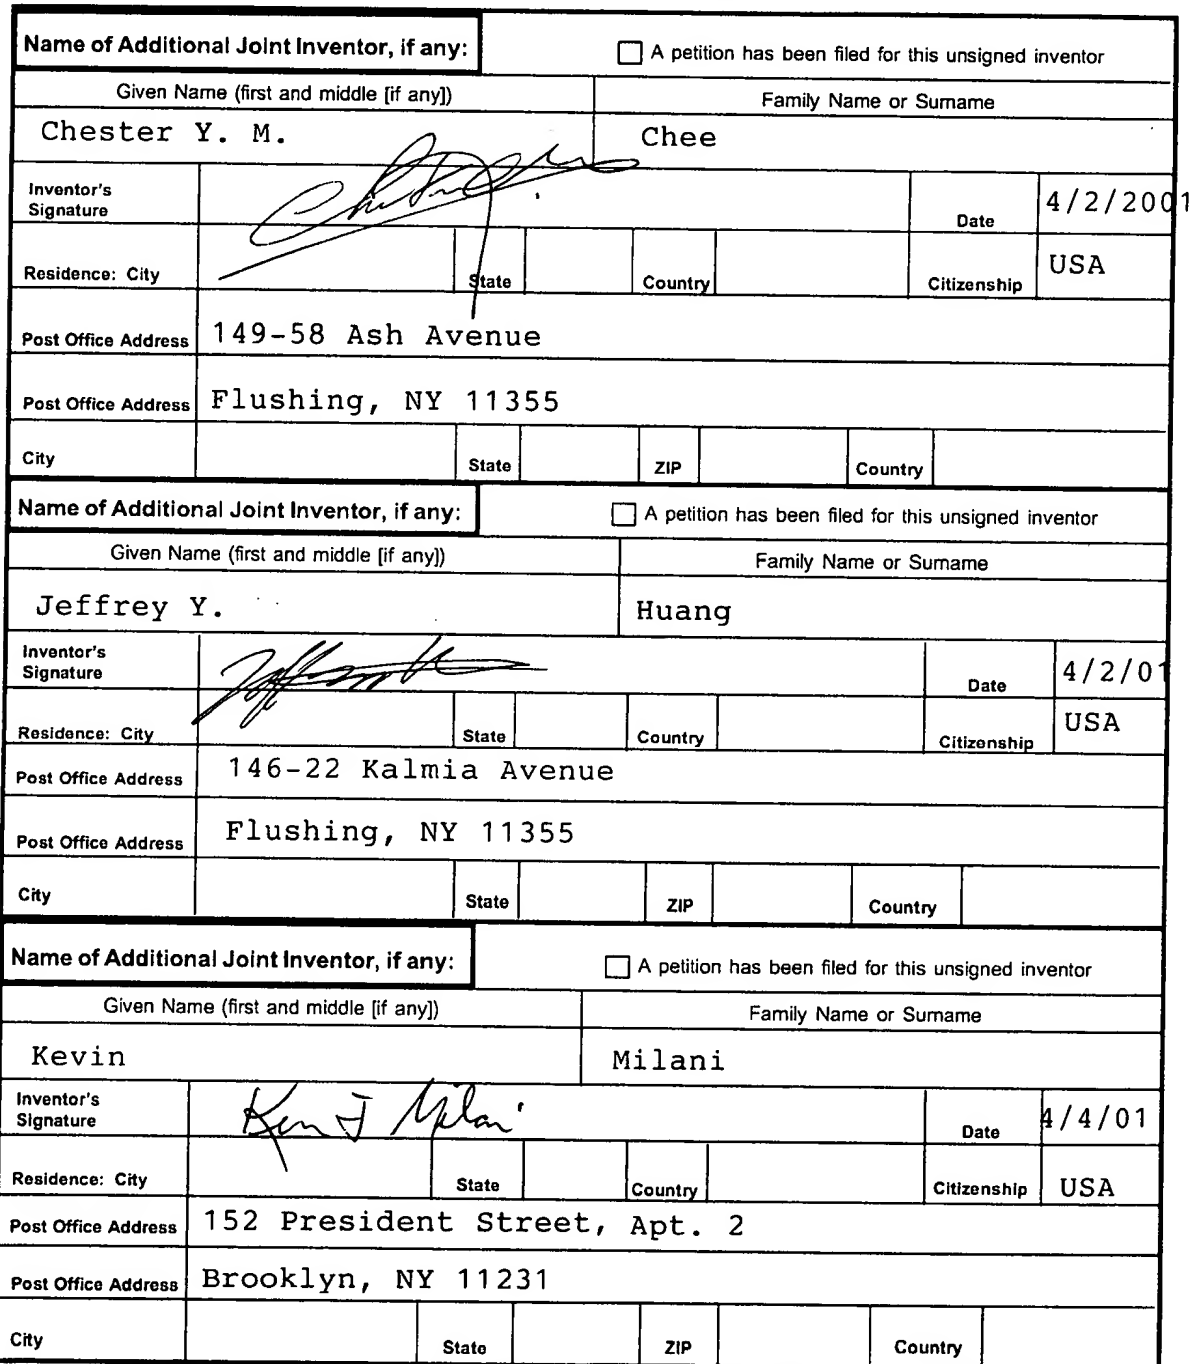 Name of Additional Joint Inventor, if any: A petition has been filed for this unsigned inventor
Given Name (first and middle [if any]) Family Name or Surname
Chester Y. M. Chee
Inventor's
Signature Date 4/2/2001
Residence: City State Country Citizenship USA
Post Office Address 149-58 Ash Avenue
Post Office Address Flushing, NY 11355
City State ZIP Country
Name of Additional Joint Inventor, if any: A petition has been filed for this unsigned inventor
Given Name (first and middle [if any]) Family Name or Surname
Jeffrey Y. Huang
Inventor's
Signature Date 4/2/01
Residence: City State Country Citizenship USA
Post Office Address 146-22 Kalmia Avenue
Post Office Address Flushing, NY 11355
City State ZIP Country
Name of Additional Joint Inventor, if any: A petition has been filed for this unsigned inventor
Given Name (first and middle [if any]) Family Name or Surname
Kevin Milani
Inventor's
Signature Date 4/4/01
Residence: City State Country Citizenship USA
Post Office Address 152 President Street, Apt. 2
Post Office Address Brooklyn, NY 11231
City State ZIP Country